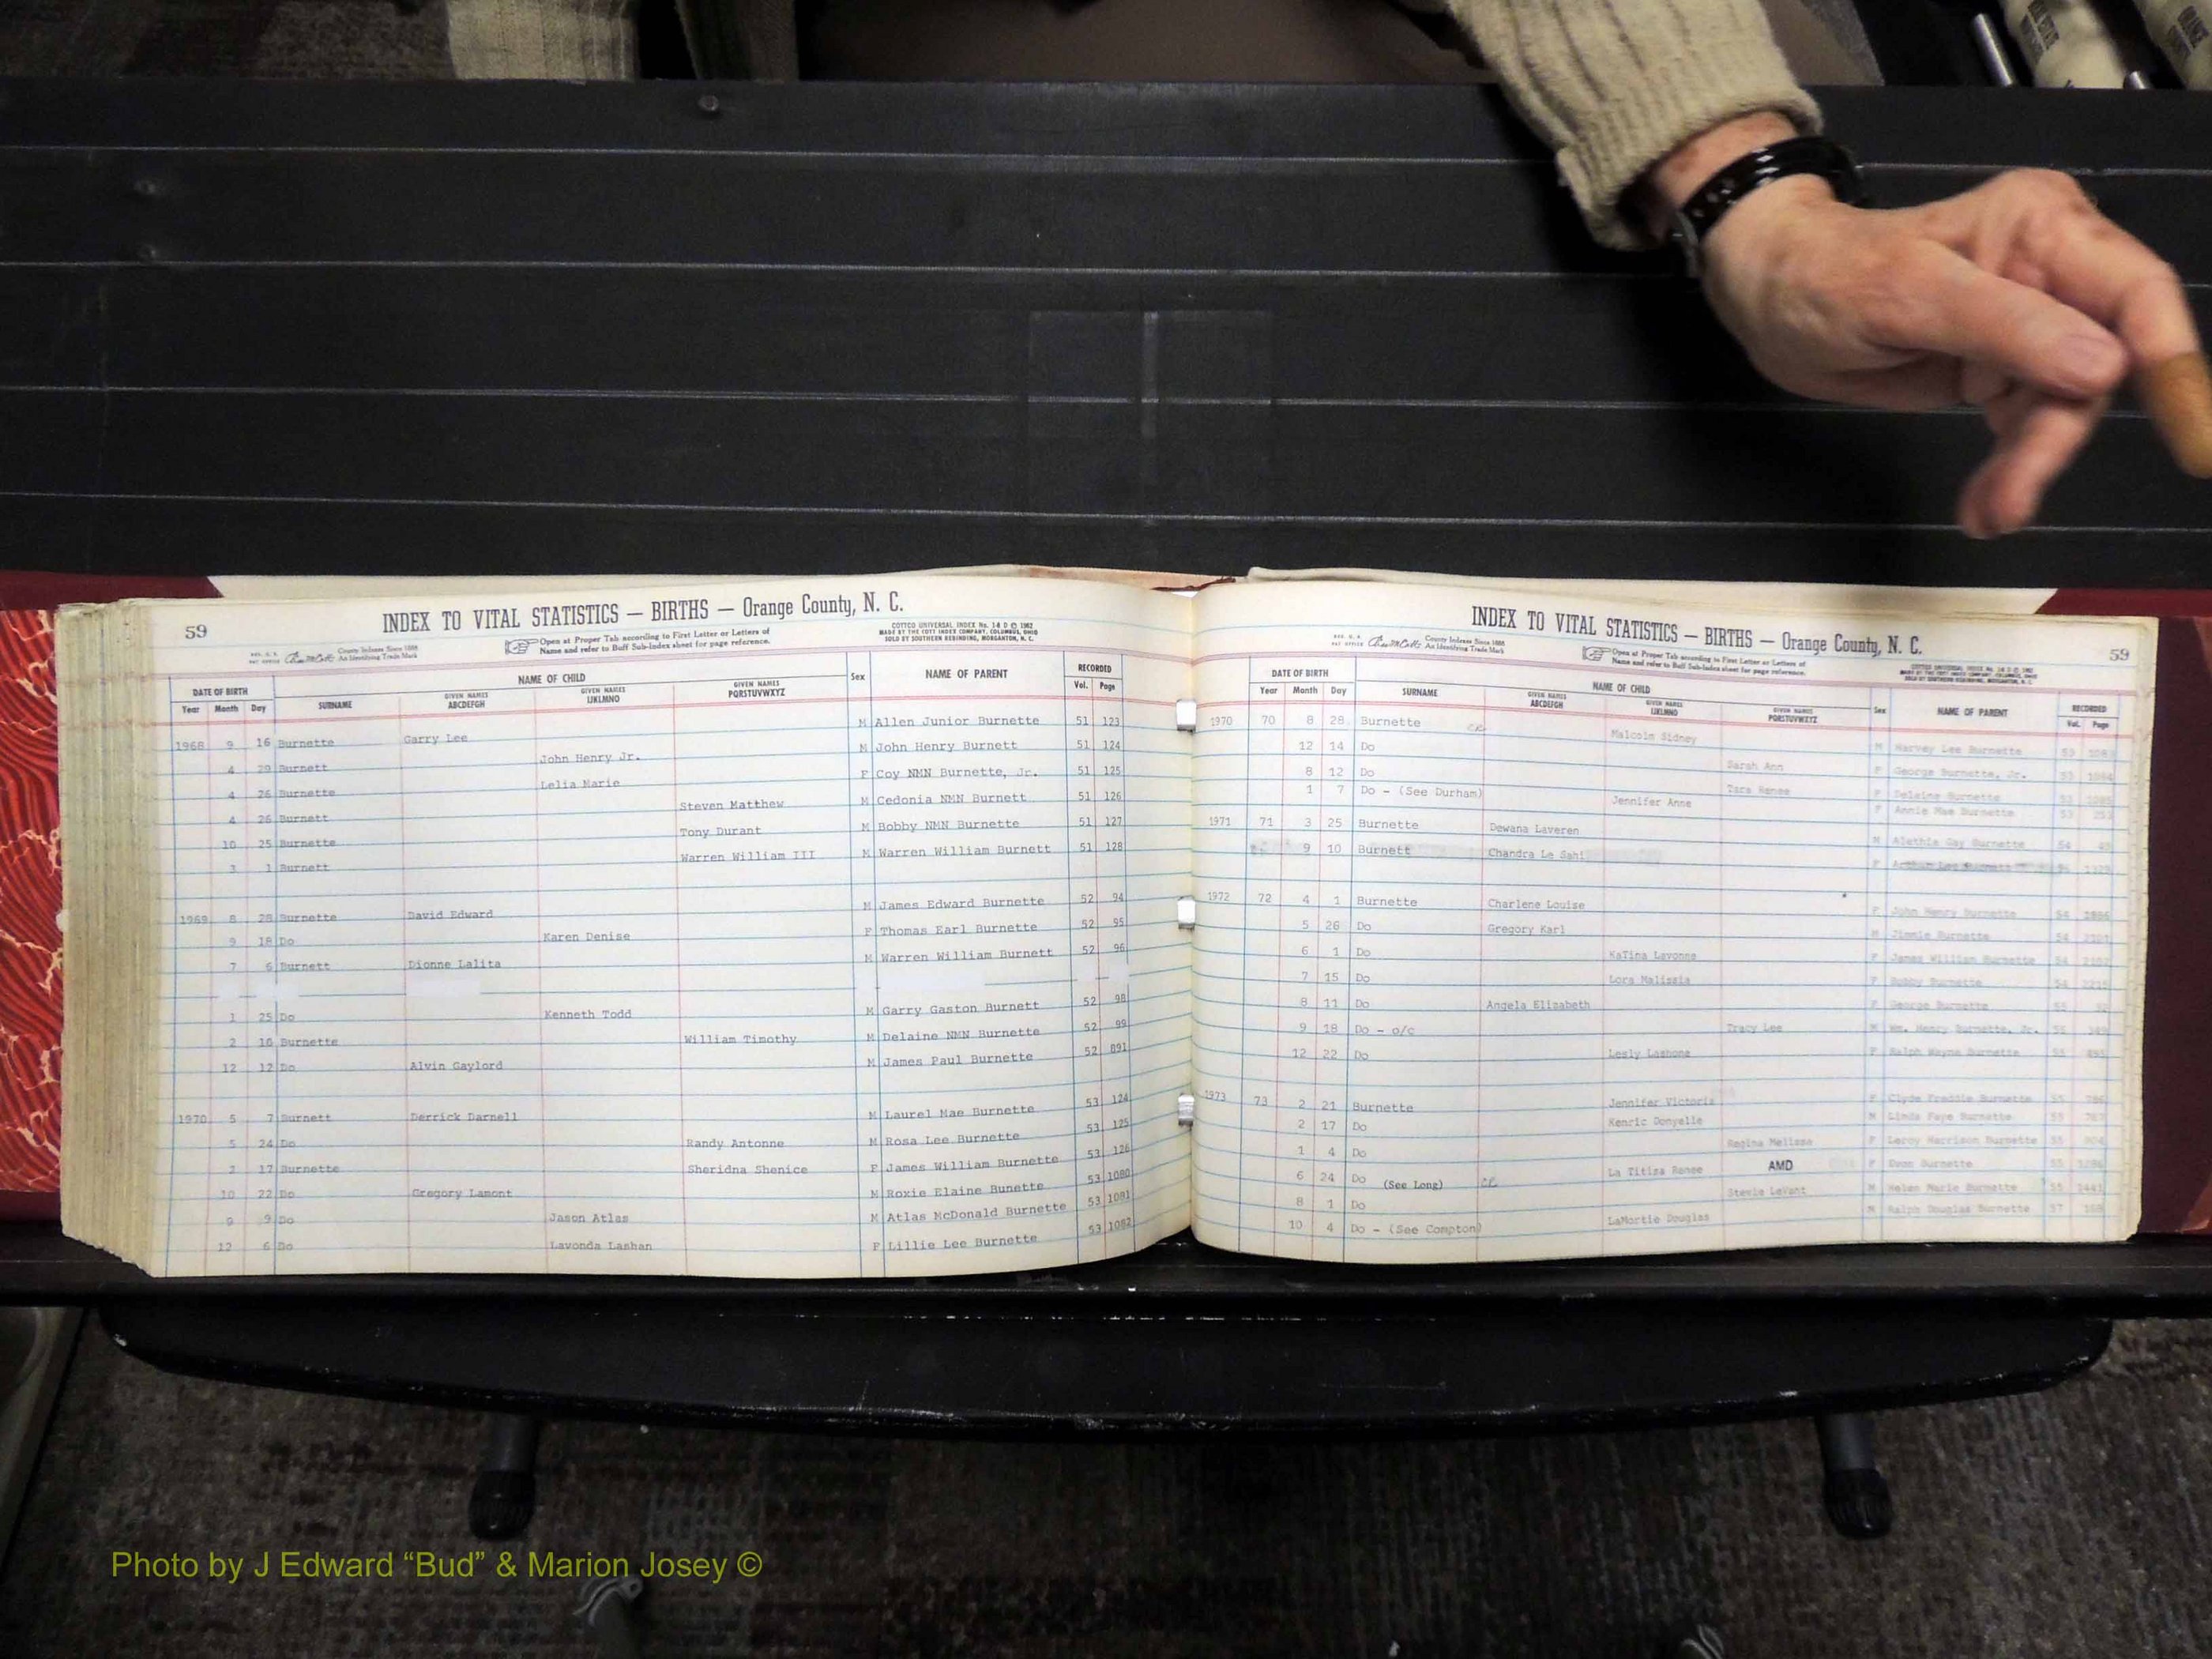 59
INDEX TO VITAL STATISTICS — BIRTHS — Orange County, N. C.
County Indexes Since 1888
An Identifying Trade Mark
Open at Proper Tab according to First Letter or Letters of
Name and refer to Buff Sub-Index sheet for page reference.
COTTCO UNIVERSAL INDEX No. 14 D © 1962
MADE BY THE COTT INDEX COMPANY, COLUMBUS, OHIO
SOLD BY SOUTHERN REBINDING, MORGANTON, N. C.
DATE OF BIRTH NAME OF CHILD Sex NAME OF PARENT RECORDED
Year Month Day SURNAME GIVEN NAMES ABCDEFGH GIVEN NAMES IJKLMNO GIVEN NAMES PQRSTUVWXYZ Vol. Page
1968 9 16 Burnette Garry Lee M Allen Junior Burnette 51 123
4 29 Burnett John Henry Jr. M John Henry Burnett 51 124
4 26 Burnette Lelia Marie F Coy NMN Burnette, Jr. 51 125
4 26 Burnett Steven Matthew M Cedonia NMN Burnett 51 126
10 25 Burnette Tony Durant M Bobby NMN Burnette 51 127
3 1 Burnett Warren William III M Warren William Burnett 51 128
1969 8 28 Burnette David Edward M James Edward Burnette 52 94
9 18 Do Karen Denise F Thomas Earl Burnette 52 95
7 6 Burnett Dionne Lalita M Warren William Burnett 52 96
1 25 Do Kenneth Todd M Garry Gaston Burnett 52 98
2 16 Burnette William Timothy M Delaine NMN Burnette 52 99
12 12 Do Alvin Gaylord M James Paul Burnette 52 891
1970 5 7 Burnett Derrick Darnell M Laurel Mae Burnette 53 124
5 24 Do Randy Antonne M Rosa Lee Burnette 53 125
17 Burnette Sheridna Shenice F James William Burnette 53 126
10 22 Do Gregory Lamont M Roxie Elaine Bunette 53 1080
9 9 Do Jason Atlas M Atlas McDonald Burnette 53 1081
12 6 Do Lavonda Lashan F Lillie Lee Burnette 53 1082
INDEX TO VITAL STATISTICS — BIRTHS — Orange County, N. C.
59
County Indexes Since 1888
An Identifying Trade Mark
Open at Proper Tab according to First Letter or Letters of
Name and refer to Buff Sub-Index sheet for page reference.
DATE OF BIRTH NAME OF CHILD Sex NAME OF PARENT RECORDED
Year Month Day SURNAME GIVEN NAMES ABCDEFGH GIVEN NAMES IJKLMNO GIVEN NAMES PQRSTUVWXYZ Vol. Page
1970 70 8 28 Burnette Malcolm Sidney M Harvey Lee Burnette 53
12 14 Do Sarah Ann F George Burnette, Jr. 53
8 12 Do Tara Renee F Delaine Burnette 53
1 7 Do - (See Durham) Jennifer Anne F Annie Mae Burnette 53
1971 71 3 25 Burnette Dewana Laveren M Alethia Gay Burnette 54
9 10 Burnett Chandra Le Sahl F
1972 72 4 1 Burnette Charlene Louise F John Henry Burnette 54
5 26 Do Gregory Karl M Jimmie Burnette 54
6 1 Do KaTina Lavonne F James William Burnette 54
7 15 Do Lora Malissia F Bobby Burnette 54
8 11 Do Angela Elizabeth F George Burnette 55
9 18 Do - o/c Tracy Lee M Wm. Henry Burnette, Jr. 55
12 22 Do Lesly Lashone F Ralph Wayne Burnette 55
1973 73 2 21 Burnette Jennifer Victoria F Clyde Freddie Burnette 55
2 17 Do Kenric Donyelle M Linda Faye Burnette 55
1 4 Do Regina Melissa F Leroy Harrison Burnette 55
6 24 Do (See Long) La Titiza Renee AMD F Burnette
8 1 Do Stevie LeVant M Helen Marie Burnette 55 1441
10 4 Do - (See Compton) LaMortie Douglas M Ralph Douglas Burnette 57
Photo by J Edward “Bud” & Marion Josey ©